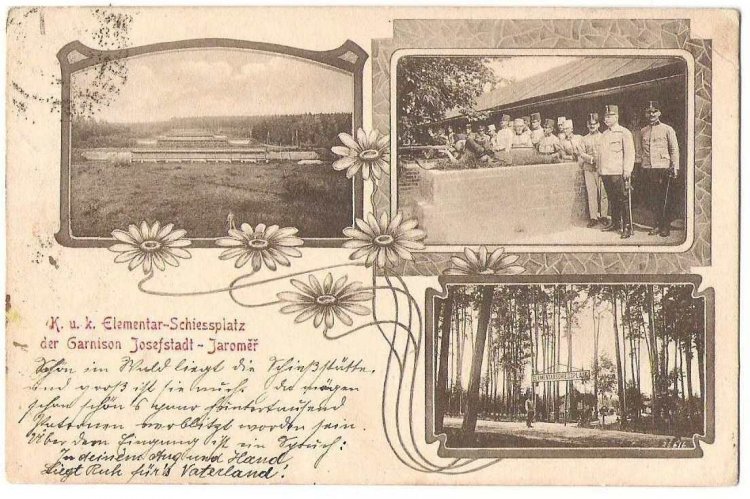 K. u. k. Elementar-Schiessplatz
der Garnison Josefstadt - Jaroměř
Schön im Wald liegt die Schießstätte,
und groß ist sie auch. Da mögen
schon schön's paar hunderttausend
Patronen worden sein
Über dem Eingang ist ein Spruch:
In deinem Aug und Hand
Liegt Ruh für's Vaterland!